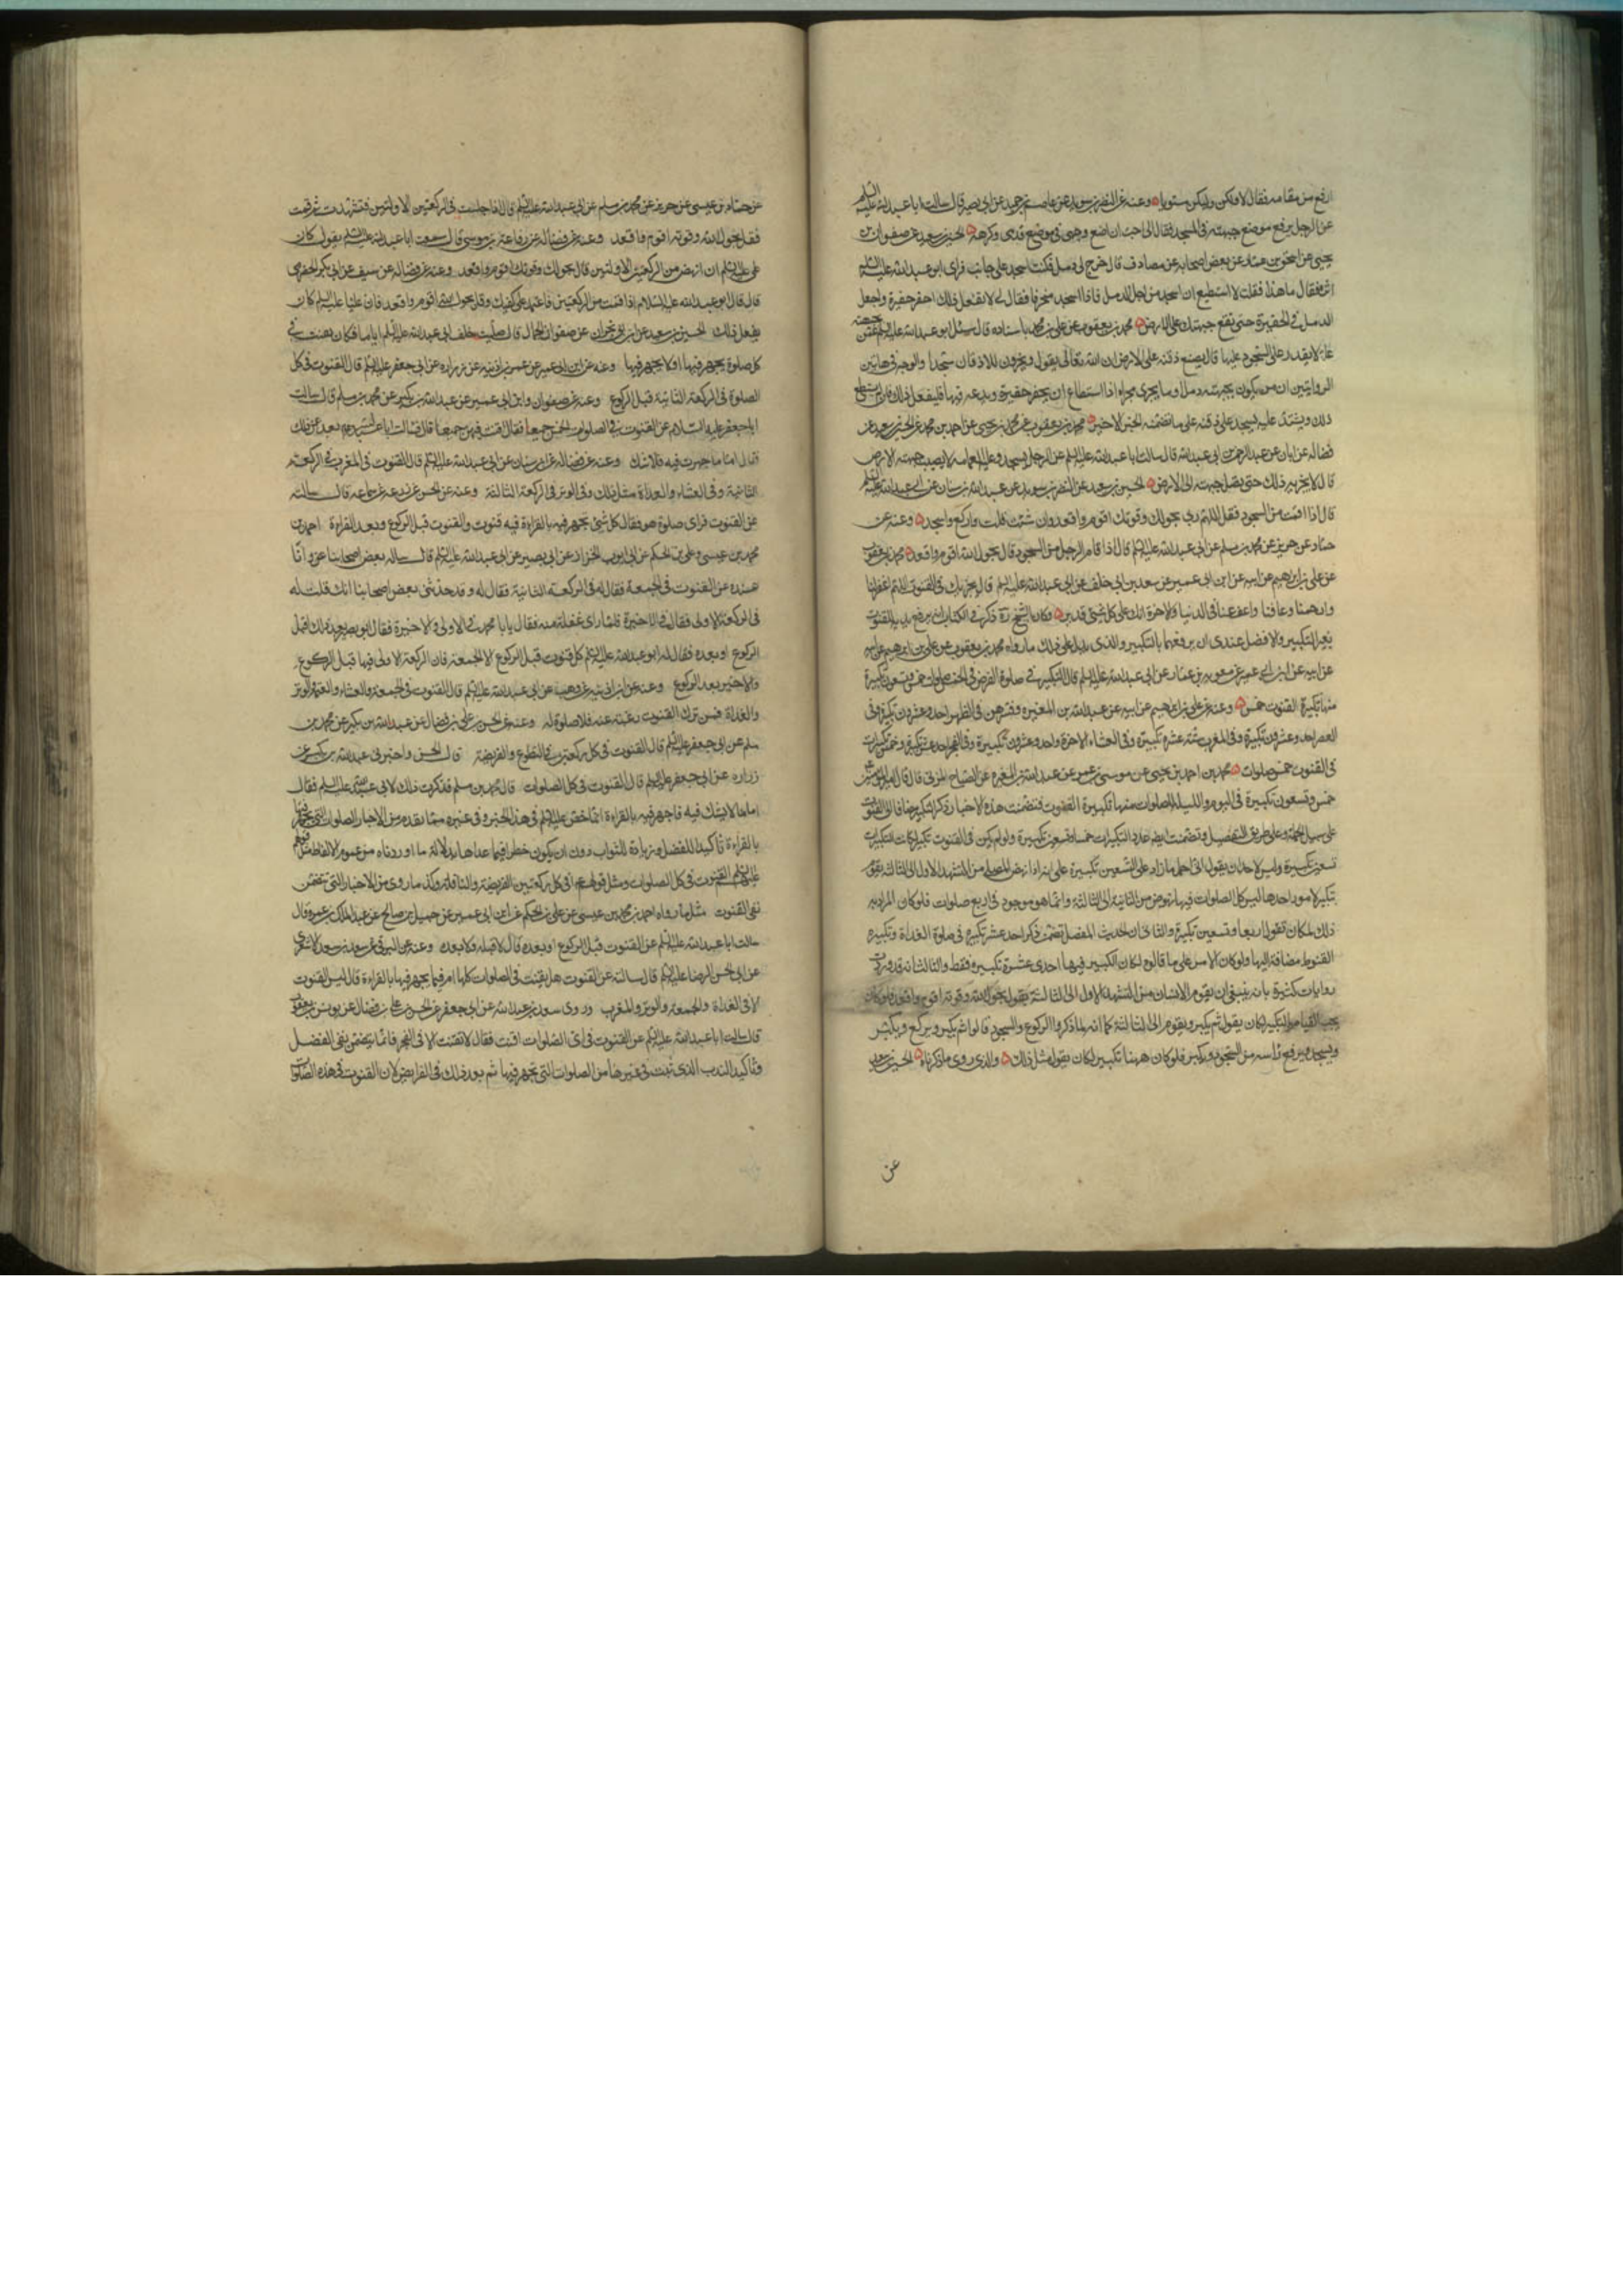 ارفع من مقامه فقال لا ولكن وليكن مستويا وعنه عن النضر بن سويد عن عاصم بن حميد عن ابي بصير قال سالت ابا عبد الله عليه السلم
عن الرجل يرفع موضع جبهته في المسجد فقال اني احب ان اضع وجهي في موضع قدمي وكرهه الحسين بن سعيد عن صفوان بن
يحيى عن اسحق بن عمار عن بعض اصحابه عن مصادف قال خرج لي دمل فكنت اسجد على جانب فراى ابو عبد الله عليه السلم
اثره فقال ما هذا فقلت لا استطيع ان اسجد من اجل الدمل فاذا اسجد منحرفا فقال لي لا تفعل ذلك احفر حفيرة واجعل
الدمل في الحفيرة حتى تقع جبهتك على الارض محمد بن يعقوب عن علي بن محمد باسناده قال سئل ابو عبد الله عليه السلم عمن بجبهته
علة لا يقدر على السجود عليها قال يضع ذقنه على الارض ان الله تعالى يقول ويخرون للاذقان سجدا والوجه في هاتين
الروايتين ان من يكون بجبهته دمل او ما يجري مجراه اذا استطاع ان يحفر حفيرة ويدعه فيها فليفعل ذلك فان لم يستطع
ذلك ويشتد عليه يسجد على ذقنه على ما تضمنه الخبر الاخير محمد بن يعقوب عن محمد بن يحيى عن احمد بن محمد عن الحسين بن سعيد عن
فضالة عن ابان عن عبد الرحمن بن ابي عبد الله قال سالت ابا عبد الله عليه السلم عن الرجل يسجد وعليه العمامة لا يصيب جبهته الارض
قال لا يجزيه ذلك حتى يصل جبهته الى الارض الحسين بن سعيد عن النضر بن سويد عن عبد الله بن سنان عن ابي عبد الله عليه السلم
قال اذا قمت من السجود فقل اللهم ربي بحولك وقوتك اقوم واقعد وان شئت قلت واركع واسجد وعنه عن
حماد عن حريز عن محمد بن مسلم عن ابي عبد الله عليه السلم قال اذا قام الرجل من السجود قال بحول الله اقوم واقعد محمد بن يعقوب
عن علي بن ابراهيم عن ابيه عن ابن ابي عمير عن سعد بن ابي خلف عن ابي عبد الله عليه السلم قال يجزيك في القنوت اللهم اغفر لنا
وارحمنا وعافنا واعف عنا في الدنيا والاخرة انك على كل شيء قدير وكان الشيخ ره ذكر في الكتاب انه يرفع يديه للقنوت
بغير التكبير والافضل عندي ان يرفعهما بالتكبير والذي يدل على ذلك ما رواه محمد بن يعقوب عن علي بن ابرهيم عن ابيه
عن ابيه عن ابن ابي عمير عن معوية بن عمار عن ابي عبد الله عليه السلم قال التكبير في صلوة الفرض في الخمس صلوات خمس وتسعون تكبيرة
منها تكبيرة القنوت خمس وعنه عن علي بن ابرهيم عن ابيه عن عبد الله بن المغيره وفسرهن في الظهر احد وعشرون تكبيرة وفي
العصر احد وعشرون تكبيرة وفي المغرب ستة عشرة تكبيرة وفي العشاء الاخرة واحد وعشرون تكبيرة وفي الفجر احد عشر تكبيرة وخمس تكبيرات
في القنوت خمس صلوات محمد بن احمد بن يحيى عن موسى بن عمر عن عبد الله بن المغيره عن الصباح المزني قال قال امير المومنين ع
خمس وتسعون تكبيرة في اليوم والليلة للصلوات منها تكبيرة القنوت فتضمنت هذه الاخبار ذكر تكبيرات القنوت
على سبيل الجملة وعلى طريق التفصيل وتضمنت ايضا عدد التكبيرات خمسا وتسعين تكبيرة ولو لم يكن في القنوت تكبير لكانت التكبيرات
تسعين تكبيرة وليس لاحد ان يقول انني احمل ما زاد على التسعين تكبيرة على انه اذا نهض المصلي من التشهد الاول الى الثالثة يقوم
بتكبير لامور احدها ليس كل الصلوات فيها نهوض من الثانية الى الثالثة وانما هو موجود في اربع صلوات فلو كان المراد به
ذلك لكان تقول اربعا وتسعين تكبيرة والثاني ان الحديث المفصل تضمن ذكر احد عشر تكبيرة في صلوة الغداة وتكبيرة
القنوط مضافة اليها ولو كان الامر على ما قالوه لكان التكبير فيها احدى عشرة تكبيره فقط والثالث انه قد وردت
روايات كثيرة بانه ينبغي ان يقوم الانسان من التشهد الاول الى الثالثة يقول بحول الله وقوته اقوم واقعد فلو كان
يجب القيام بالتكبير لكان يقول ثم يكبر ويقوم الى الثالثة كما انهم لما ذكروا الركوع والسجود قالوا ثم يكبر ويركع ويكبر
ويسجد ويرفع راسه من السجود ويكبر فلو كان ههنا تكبير لكان يقول مثل ذلك والذي روى ما ذكرناه الحسين بن سعيد
عن
عن حماد بن عيسى عن حريز عن محمد بن مسلم عن ابي عبد الله عليه السلم قال اذا جلست في الركعتين الاولتين فتشهدت ثم قمت
فقل بحول الله وقوته اقوم واقعد وعنه عن فضالة عن رفاعة بن موسى قال سمعت ابا عبد الله عليه السلم يقول كان
علي عليه السلم ان انهض من الركعتين الاولتين قال بحولك وقوتك اقوم واقعد وعنه عن فضالة عن سيف عن ابي بكر الحضرمي
قال قال ابو عبد الله عليه السلام اذا قمت من الركعتين فاعتمد على كفيك وقل بحول الله اقوم واقعد فان عليا عليه السلم كان
يفعل ذلك الحسين بن سعيد عن ابن ابي نجران عن صفوان الجمال قال صليت خلف ابي عبد الله عليه السلم اياما فكان يقنت في
كل صلوة يجهر فيها او لا يجهر فيها وعنه عن ابن ابي عمير عن عمر بن اذينه عن زراره عن ابي جعفر عليه السلم قال القنوت في كل
الصلوة في الركعة الثانية قبل الركوع وعنه عن صفوان وابن ابي عمير عن عبد الله بن بكير عن محمد بن مسلم قال سالت
ابا جعفر عليه السلام عن القنوت في الصلوات الخمس جميعا فقال اقنت فيهن جميعا قال فسالت ابا عبد الله ع بعد عن ذلك
فقال اما ما جهرت فيه فلا تشك وعنه عن فضالة عن ابن سنان عن ابي عبد الله عليه السلم قال القنوت في المغرب في الركعة
الثانية وفي العشاء والغداة مثل ذلك وفي الوتر في الركعة الثالثة وعنه عن الحسن عن زرعه عن سماعه قال سالته
عن القنوت في اي صلوة هو فقال كل شيء يجهر فيه بالقراءة فيه قنوت والقنوت قبل الركوع وبعد القراءة احمد بن
محمد بن عيسى وعلي بن الحكم عن ابي ايوب الخزاز عن ابي بصير عن ابي عبد الله عليه السلم قال ساله بعض اصحابنا عن وانا
عنده عن القنوت في الجمعة فقال له في الركعة الثانية فقال له وقد حدثني بعض اصحابنا انك قلت له
في الركعة الاولى فقال في الاخيرة فلما راى غفلة منه فقال يابا محمد في الاولى والاخيرة فقال ابو بصير بعد ذلك اقبل
الركوع او بعده فقال له ابو عبد الله عليه السلم كل قنوت قبل الركوع الا الجمعة فان الركعة الاولى فيها قبل الركوع
والاخير بعد الركوع وعنه عن ابن اذينه عن وهب عن ابي عبد الله عليه السلم قال القنوت في الجمعة والعشاء والعتمة والوتر
والغداة فمن ترك القنوت رغبة عنه فلا صلوة له وعنه عن الحسن بن علي بن فضال عن عبد الله بن بكير عن محمد بن
مسلم عن ابي جعفر عليه السلم قال القنوت في كل ركعتين في التطوع والفريضة قال الحسن واخبرني عبد الله بن بكير عن
زرارة عن ابي جعفر عليه السلم قال القنوت في كل الصلوات قال محمد بن مسلم فذكرت ذلك لابي عبد الله عليه السلم فقال
اما ما لا يشك فيه فما جهر فيه بالقراءة انما خص عليه السلم في هذا الخبر وفي غيره مما تقدم من الاخبار الصلوات التي يجهر فيها
بالقراءة تاكيدا للفضل وزيادة للثواب دون ان يكون خطر فيما عداها بدلالة ما اوردناه من عموم الالفاظ مثل قولهم
عليهم السلم القنوت في كل الصلوات ومثل قولهم ع في كل ركعتين الفريضة والنافلة وكذا ما روى من الاخبار التي تتضمن
نفي القنوت مثل ما رواه احمد بن محمد بن عيسى عن علي بن الحكم عن ابن ابي عمير عن جميل بن صالح عن عبد الملك بن عمرو قال
سالت ابا عبد الله عليه السلم عن القنوت قبل الركوع او بعده قال لا قبله ولا بعده وعنه عن البرقي عن سعد بن سعد الاشعري
عن ابي الحسن الرضا عليه السلم قال سالته عن القنوت هل يقنت في الصلوات كلها ام فيما يجهر فيها بالقراءة قال ليس القنوت
الا في الغداة والجمعة والوتر والمغرب وروى سعد بن عبد الله عن ابي جعفر عن الحسن بن علي بن فضال عن يونس بن يعقوب
قال سالت ابا عبد الله عليه السلم عن القنوت في اي الصلوات اقنت فقال لا تقنت الا في الفجر فانما يتضمن نفي الفضل
وتاكيد الندب الذي ثبت في غيرها من الصلوات التي يجهر فيها ثم بعد ذلك في الفرايض لان القنوت في هذه الصلوات